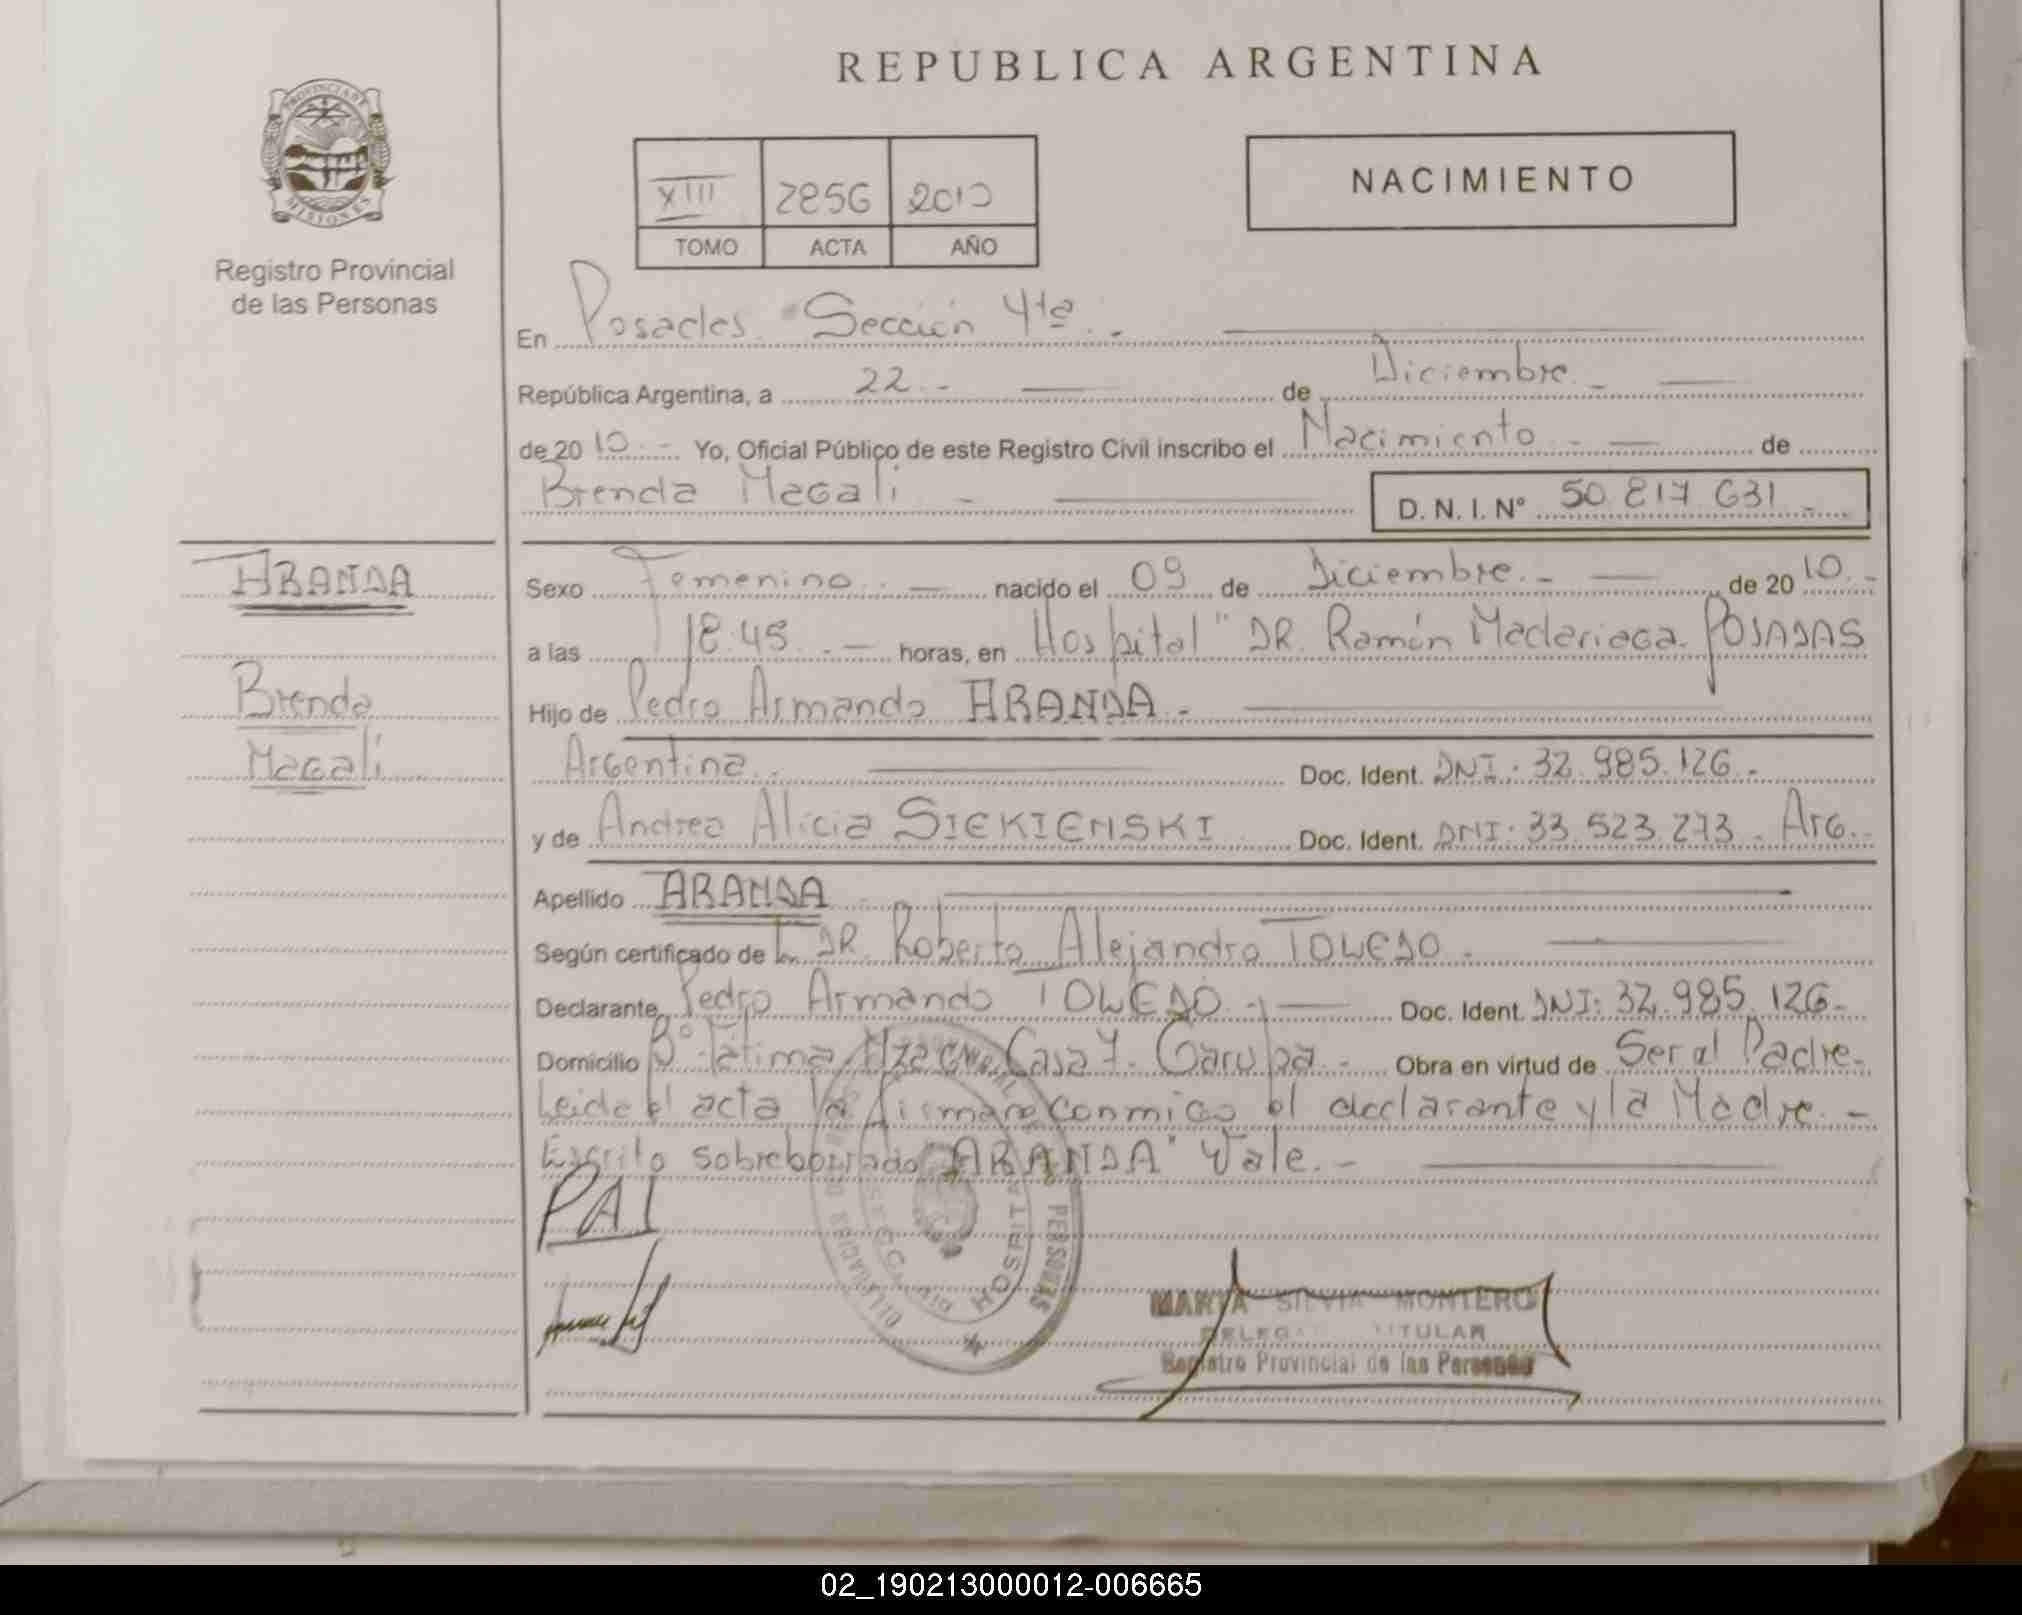 REPUBLICA ARGENTINA
PROVINCIA DE
MISIONES
Registro Provincial
de las Personas
XIII 2856 2010
TOMO ACTA AÑO
NACIMIENTO
En Posadas Sección 4ta.-
República Argentina, a 22.- de Diciembre.-
de 2010.- Yo, Oficial Público de este Registro Civil inscribo el Nacimiento.- de
Brenda Magali - D. N. I. Nº 50.817.631.-
ARANDA
Brenda
Magali
Sexo Femenino.- nacido el 09 de Diciembre.- de 2010.-
a las 18:45.- horas, en Hospital "DR. Ramón Madariaga. POSADAS
Hijo de Pedro Armando ARANDA.-
Argentina.- Doc. Ident. DNI: 32.985.126.-
y de Andrea Alicia SIEKIENSKI Doc. Ident. DNI: 33.523.273.- Arg.-
Apellido ARANDA.-
Según certificado de DR. Roberto Alejandro TOLEDO.-
Declarante Pedro Armando TOLEDO.- Doc. Ident. DNI: 32.985.126.-
Domicilio Bº Fátima Mza Casa 7- Garupa.- Obra en virtud de Ser al Padre.-
Leida el acta la firman conmigo el declarante y la Madre.-
Escrito sobreborrado "ARANDA" Vale.-
PAI
PERSONAS
MARTA SILVIA MONTERO
DELEGADA TITULAR
Registro Provincial de las Personas
02_190213000012-006665